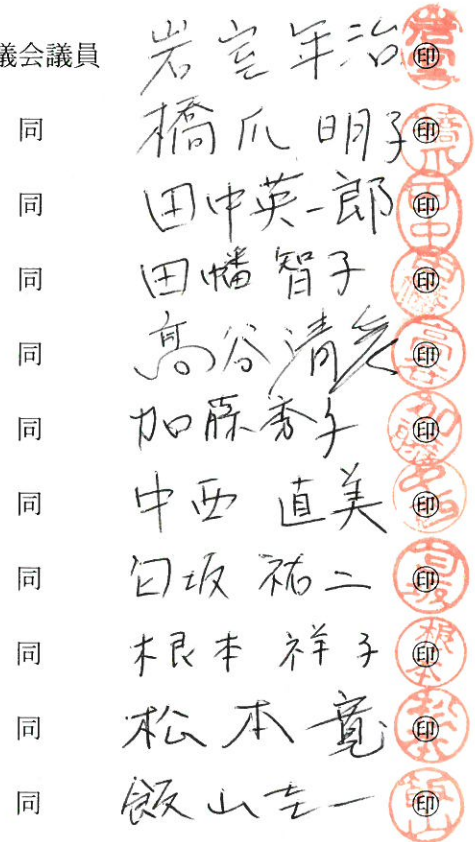 議会議員 岩室年治 ㊞
同 橋爪明子 ㊞
同 田中英一郎 ㊞
同 田幡智子 ㊞
同 髙谷清彦 ㊞
同 加藤秀子 ㊞
同 中西直美 ㊞
同 匂坂祐二 ㊞
同 根本祥子 ㊞
同 松本寛 ㊞
同 飯山圭一 ㊞